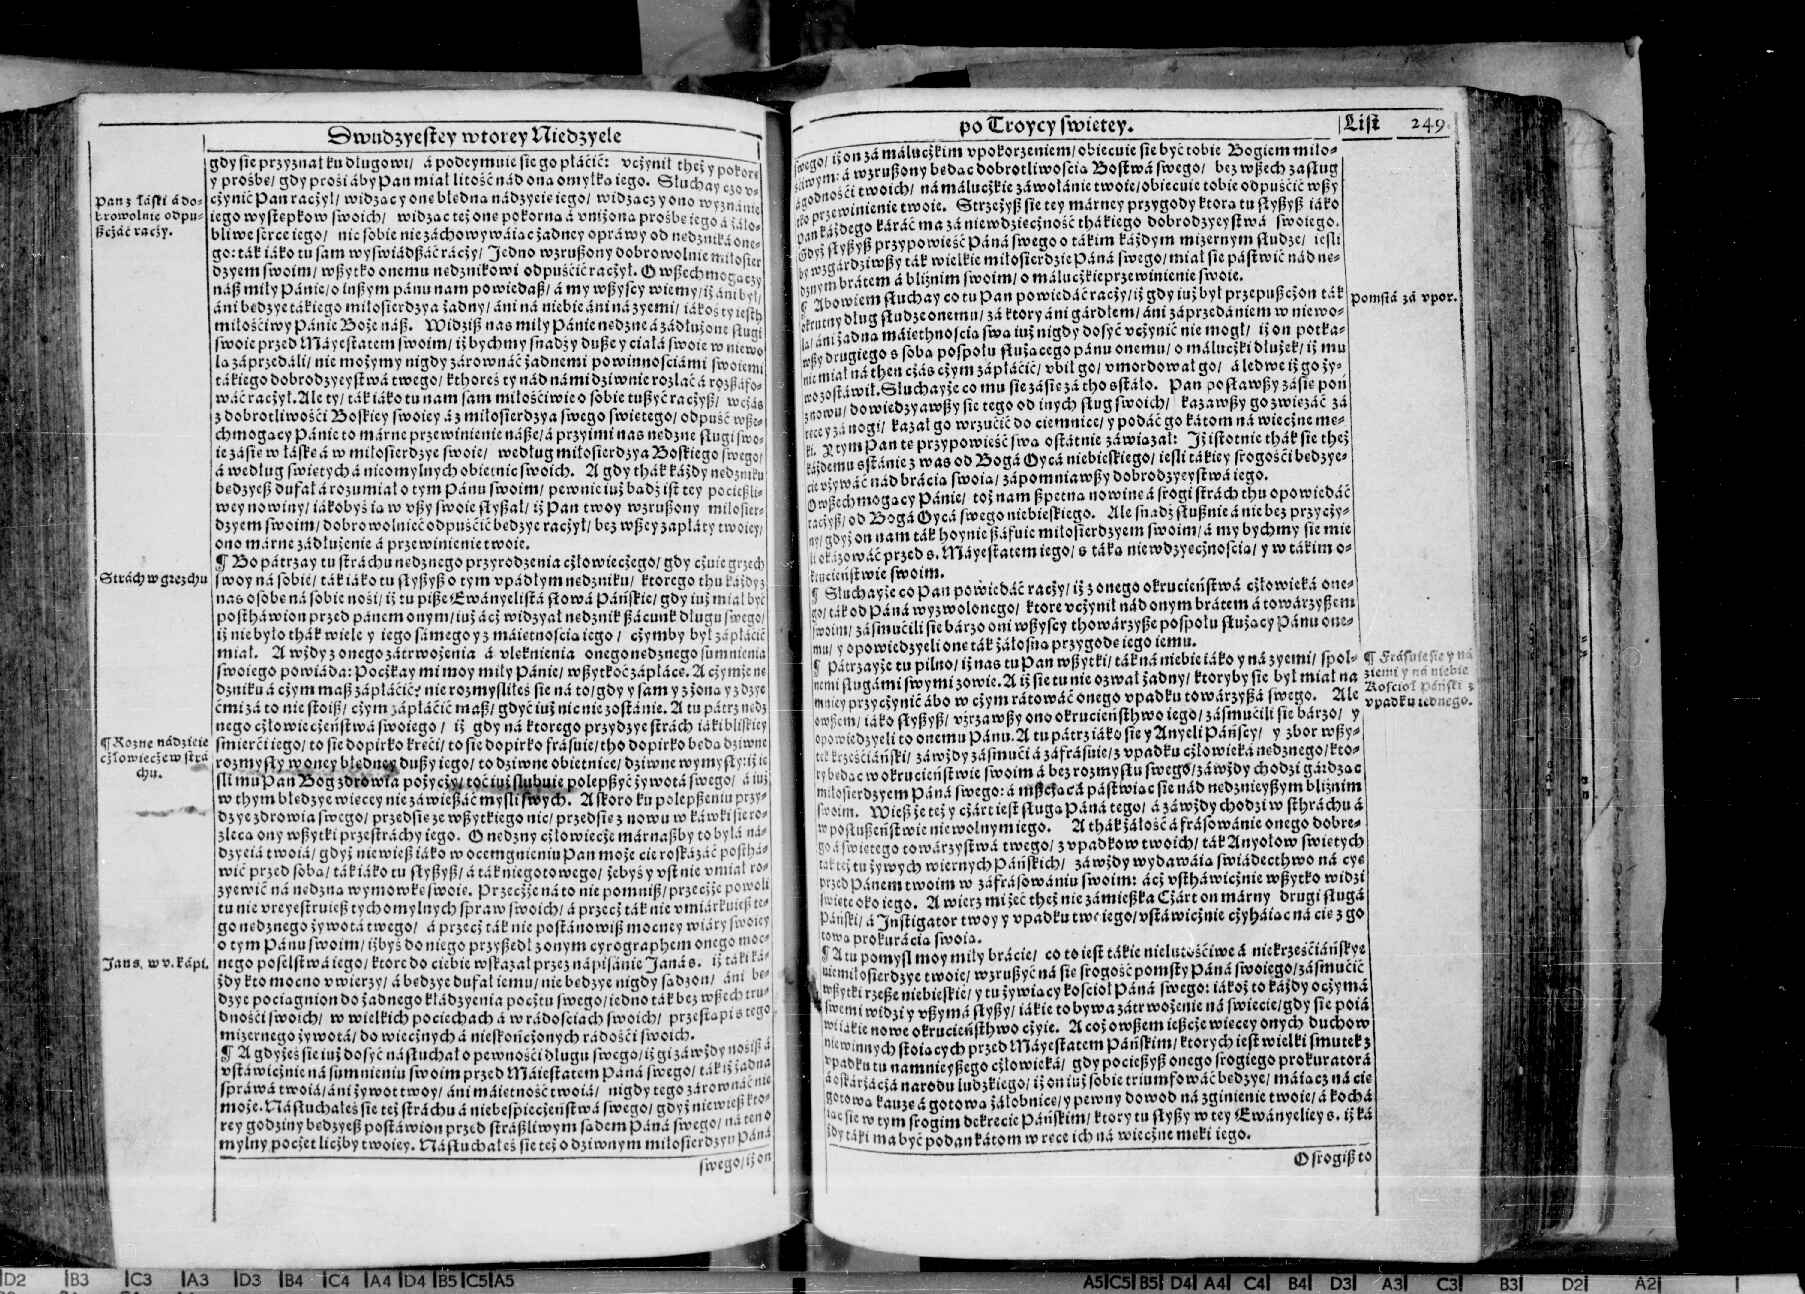 Dwudzyestey wtorey Niedzyele
gdy sie przyznał ku długowi/ á podeymuie sie go płáćić: vcżynił też y pokorę
y prośbe/ gdy prośi áby Pan miał litość nád oną omyłką iego. Słuchay czo v-
cżynić Pan racżył/ widzący one błedną nádzyeię iego/ widzącz y ono wyznánie
iego wystepkow swoich/ widząc też one pokorną á vniżoną prośbe iego á żáło-
bliwe serce iego/ nic sobie nie záchowywáiąc żadney opráwy od nędzniká one-
go: ták iáko tu sam wyświádßáć rácży/ Jedno wzrußony dobrowolnie miłosier
dzyem swoim/ wßytko onemu nędznikowi odpuśćić racżył. O wßechmogączy
náß miły Pánie/ o inßym pánu nam powiedaß/ á my wßyscy wiemy/ iż áni był/
áni bedzye tákiego miłosierdzya żadny/ áni ná niebie áni ná zyemi/ iákoś ty iesth
miłośćiwy Pánie Boże náß. Widziß nas miły Pánie nedzne á zádłużone sługi
swoie przed Máyestatem swoim/ iż bychmy snadźy duße y ciáłá swoie w niewo
lą záprzedáli/ nie możymy nigdy zárownáć żadnemi powinnośćiámi swoiemi
tákiego dobrodzyeystwá twego/ kthoreś ty nád námi dziwnie rozlać á rozßáfo-
wáć racżył. Ale ty/ ták iáko tu nam sam miłośćiwie o sobie tußyć racżyß/ wcżás
z dobrotliwośći Boskiey swoiey á z miłosierdzya swego swietego/ odpuść wße-
chmogący Pánie to márne przewinienie náße/ á przyimi nas nędzne sługi swo-
ie záśie w łáske á w miłosierdzye swoie/ według miłosierdzya Boskiego swego/
á według swietych á nieomylnych obietnic swoich. A gdy thák káżdy nędzniku
bedzyeß dufał á rozumiał o tym Pánu swoim/ pewnie iuż bądź ist tey pocießli-
wey nowiny/ iákobyś ią w vßy swoie słyßał/ iż Pan twoy wzrußony miłosier-
dzyem swoim/ dobrowolnieć odpuśćić bedzye racżył/ bez wßey zapłáty twoiey/
ono márne zádłużenie á przewinienie twoie.
¶ Bo pátrzay tu stráchu nędznego przyrodzenia cżłowiecżego/ gdy cżuie grzech
swoy ná sobie/ ták iáko tu słyßyß o tym vpádłym nędzniku/ ktorego thu káżdy z
nas osobe ná sobie nośi/ iż tu piße Ewányelistá słowá Páńskie/ gdy iuż miał być
posthawion przed pánem onym/ iuż ácż widzyał nędznik ßácunk długu swego/
iż nie było thák wiele y iego sámego y z máietnośćią iego/ cżymby był zápłáćić
miał. A wżdy z onego zátrwożenia á vleknienia onego nędznego sumnienia
swoiego powiáda: Pocżkay mi moy miły Pánie/ wßytkoć zápłáce. A cżymże ne
dzniku á cżym maß zápłáćić? nie rozmyśliłeś sie ná to/ gdy y sam y z żoną y z dzye
ćmi zá to nie stoiß/ cżym zápłáćić maß/ gdyć iuż nic nie zostánie. A tu pátrz nędz
nego cżłowiecżeństwá swoiego/ iż gdy ná ktorego przydzye strách iáki bliskiey
śmierći iego/ to sie dopirko kreći/ to sie dopirko frásuie/ tho dopirko bedą dziwne
rozmysły w oney błędney dußy iego/ to dziwne obietnice/ dziwne wymysły: iż ie
sli mu Pan Bog zdrowia pożycży/ toć iuż slubuie polepßyć żywotá swego/ á iuż
w thym błędzye wiecey nie záwießáć mysli swych. A skoro ku polepßeniu przy-
dzye zdrowia swego/ przedsie ze wßytkiego nic/ przedsie z nowu w káwki sie ro-
zleca ony wßytki przestráchy iego. O nędzny cżłowiecże márnaßby to byłá ná-
dzyeiá twoiá/ gdyż niewieß iáko w ocemgnieniu Pan może cie roskázáć posthá-
wić przed sobą/ ták iáko tu słyßyß/ á ták niegotowego/ żebyś y vst nie vmiał ro-
zyewić ná nędzną wymowke swoie. Przecżże ná to nie pomniß/ przecżże powoli
tu nie vreyestruieß tych omylnych spraw swoich/ á przecż ták nie vmiárkuieß te-
go nędznego żywotá twego/ á przecż ták nie postánowiß mocney wiáry swoiey
o tym Pánu swoim/ iżbyś do niego przyßedł z onym cyrographem onego moc-
nego poselstwá iego/ ktore do ciebie wskazał przez nápisánie Janá s. iż táki ká-
żdy kto mocno vwierzy/ á bedzye dufał iemu/ nie bedzye nigdy sądzon/ áni be-
dzye pociągnion do żadnego kłádzyenia pocżtu swego/ iedno ták bez wßech tru-
dnośći swoich/ w wielkich pociechach á w rádośćiach swoich/ przestąpi s tego
mizernego żywotá/ do wiecżnych á nieskońcżonych rádośći swoich.
¶ A gdyżeś sie iuż dosyć násłuchał o pewnośći długu swego/ iż gi záwżdy nośiß á
vstáwicżnie ná sumnieniu swoim przed Máiestatem Páná swego/ ták iż żadna
spráwá twoiá/ áni żywot twoy/ áni máietność twoiá/ nigdy tego zárownáć nie
może. Násłuchałeś sie też stráchu á niebespiecżeństwá swego/ gdyż niewieß kto-
rey godziny bedzyeß postáwion przed stráßliwym sądem Páná swego/ ná ten o
mylny pocżet licżby twoiey. Násłuchałeś sie też o dziwnym miłosierdzyu Páná
swego/ iż on
Pan z łáski á do-
browolnie odpu-
ßcżáć racży.
Strách w grzechu
¶ Rozne nádzieie
cżłowiecże w strá
chu.
Jan s. w v. kápi.
po Troycy swietey.
List 249.
swego/ iż on zá máluckim vpokorzeniem/ obiecuie sie być tobie Bogiem miło-
śćiwym: á wzrußony bedąc dobrotliwośćią Bostwá swego/ bez wßech zasług
á godnośći twoich/ ná málucżkie záwołánie twoie/ obiecuie tobie odpuśćić wßy
tko przewinienie twoie. Strzeżyß sie tey márney przygody ktorą tu słyßyß iáko
Pan káżdego káráć ma zá niewdziecżność thákiego dobrodzyeystwá swoiego.
Gdyż słyßyß przypowieść Páná swego o tákim káżdym mizernym słudze/ iesli
by wzgárdziwßy ták wielkie miłosierdzie Páná swego/ miał sie pástwić nád ne-
dznym brátem á bliźnim swoim/ o málucżkie przewinienie swoie.
¶ Abowiem słuchay co tu Pan powiedáć racży/ iż gdy iuż był przepußcżon ták
okrutny dług słudze onemu/ zá ktory áni gárdłem/ áni záprzedániem w niewo-
lą/ áni żadną máiethnośćią swą iuż nigdy dosyć vcżynić nie mogł/ iż on potká-
wßy drugiego s sobą pospołu służącego pánu onemu/ o málucżki dłużek/ iż mu
nie miał ná then cżás cżym zápłáćić/ vbił go/ vmordował go/ á ledwe iż go ży-
wo zostáwił. Słuchayże co mu sie záśie zá tho sstáło. Pan posławßy záśie poń
znowu/ dowiedzyawßy sie tego od inych sług swoich/ kazawßy go zwiezáć zá
rece y zá nogi/ kazał go wrzućić do ciemnice/ y podáć go kátom ná wiecżne me-
ki. Y tym Pan te przypowieść swą ostátnie záwiązał: Iż istotnie thák sie też
káżdemu sstánie z was od Bogá Oycá niebieskiego/ iesli tákiey srogośći bedzye-
cie vżywáć nád brácią swoią/ zápomniawßy dobrodzyeystwá iego.
O wßechmogący Pánie/ toż nam ßpetną nowine á srogi strách thu opowiedáć
racżyß/ od Bogá Oycá swego niebieskiego. Ale snadź słußnie á nie bez przycży-
ny/ gdyż on nam ták hoynie ßáfuie miłosierdzyem swoim/ á my bychmy sie mie
li okázowáć przed s. Máyestatem iego/ s táką niewdzyecżnośćią/ y w tákim o-
krucieństwie swoim.
¶ Słuchayże co Pan powiedáć racży/ iż z onego okrucieństwá cżłowieká one-
go/ ták od Páná wyzwolonego/ ktore vcżynił nád onym brátem á towárzyßem
swoim/ zásmućili sie bárzo oni wßyscy thowárzyße pospołu służący Pánu one-
mu/ y opowiedzyeli one ták żáłosną przygode iego iemu.
¶ Pátrzayże tu pilno/ iż nas tu Pan wßytki/ ták ná niebie iáko y ná zyemi/ spol-
nemi sługámi swymi zowie. A iż sie tu nie ozwał żadny/ ktoryby sie był miał na
mniey przycżynić ábo w cżym rátowáć onego vpadku towárzyßá swego. Ale
owßem/ iáko słyßyß/ vźrzawßy ono okrucieństhwo iego/ zásmućili sie bárzo/ y
opowiedzyeli to onemu Pánu. A tu pátrz iáko sie y Anyeli Páńscy/ y zbor wßy-
tek krześćiáński/ záwżdy zásmuci á záfrásuie/ z vpadku cżłowieká nędznego/ kto-
ry bedąc w okrucieństwie swoim á bez rozmysłu swego/ záwżdy chodzi gárdząc
miłosierdzyem Páná swego: á mßcżąc á pástwiąc sie nád nędznieyßym bliźnim
swoim. Wieß że też y cżárt iest sługá Páná tego/ á záwżdy chodzi w sthráchu á
w posłußeństwie niewolnym iego. A thák żáłość á frásowánie onego dobre-
go á swietego towárzystwá twego/ z vpadkow twoich/ ták Anyołow swietych
ták też tu żywych wiernych Páńskich/ záwżdy wydawáią świádecthwo ná cye
przed Pánem twoim w záfrásowániu swoim: ácż vstháwicżnie wßytko widzi
swięte oko iego. A wierz mi żeć też nie zámießka Cżárt on márny drugi sługá
Páński/ á Instigator twoy y vpadku twoiego/ vstáwicżnie cżyháiąc ná cie z go
tową prokurácią swoią.
¶ A tu pomysl moy miły brácie/ co to iest tákie nielutośćiwe á niekrześćiáńskye
niemiłosierdzye twoie/ wzrußyć ná sie srogość pomsty Páná swoiego/ zásmućić
wßytki rzeße niebieskie/ y tu żywiący kościoł Páná swego: iákoż to káżdy ocżymá
swemi widzi y vßymá słyßy/ iákie to bywa zátrwożenie ná swiecie/ gdy sie poiá
wi iákie nowe okrucieństhwo cżyie. A coż owßem ießcże wiecey onych duchow
niewinnych stoiących przed Máyestatem Páńskim/ ktorych iest wielki smutek z
vpadku tu namnieyßego cżłowieká/ gdy pocießyß onego srogiego prokuratorá
á oskárżácżá narodu ludzkiego/ iż on iuż sobie triumfowáć bedzye/ máiącz ná cie
gotową kauze á gotową żáłobnice/ y pewny dowod ná zginienie twoie/ á kochá
iąc sie w tym srogim dekrecie Páńskim/ ktory tu słyßy w tey Ewányeliey s. iż ká
żdy táki ma być podan kátom w rece ich ná wiecżne meki iego.
O srogiß to
Pomstá zá vpor.
¶ Frásuie sie y ná
ziemi y ná niebie
Kościoł Páński z
vpadku iednego.
D2 B3 C3 A3 D3 B4 C4 A4 D4 B5 C5 A5
A5 C5 B5 D4 A4 C4 B4 D3 A3 C3 B3 D2 A2